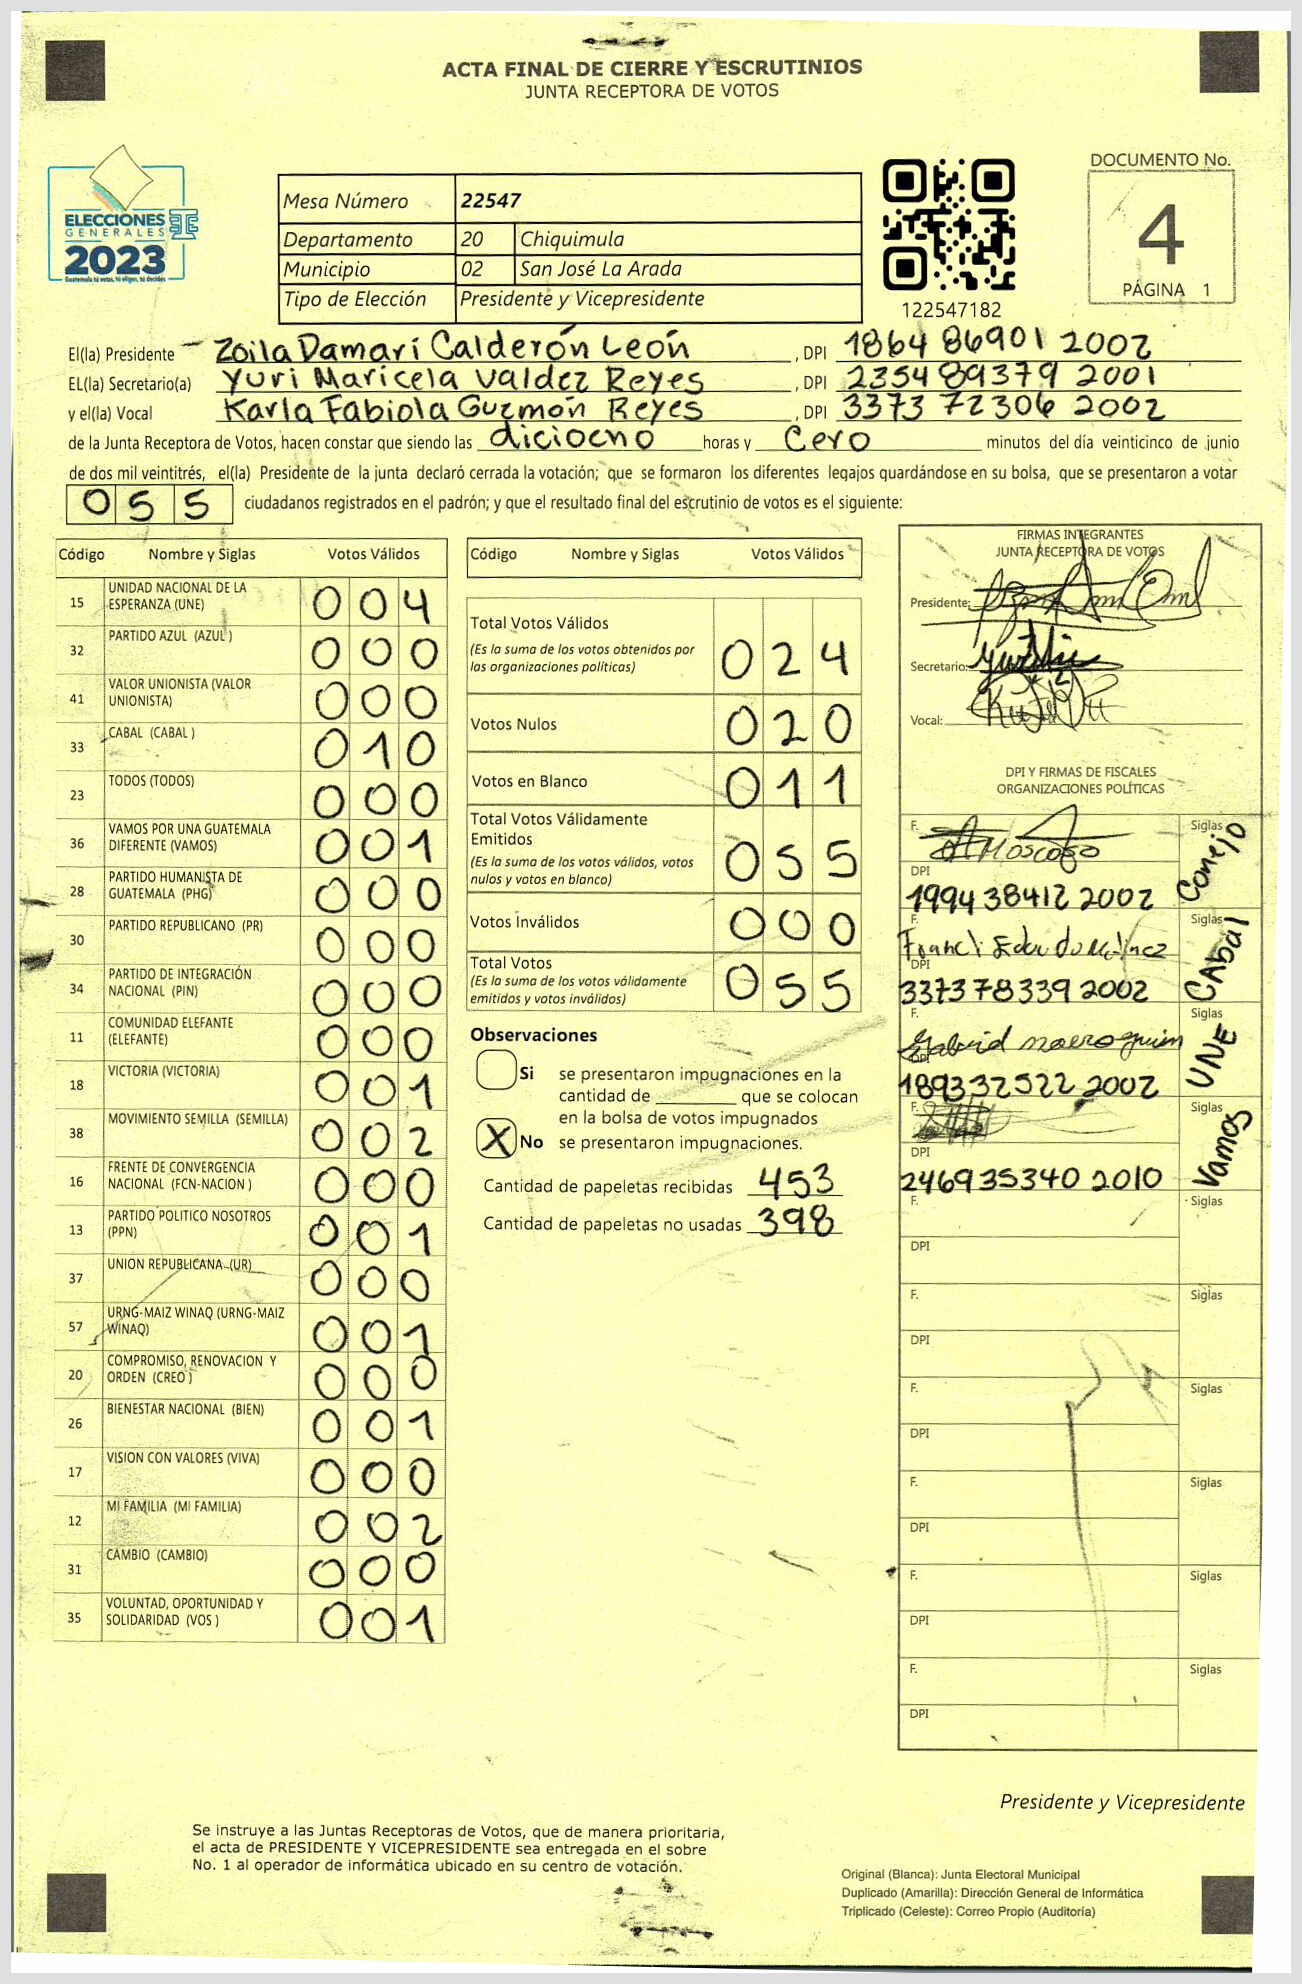 ACTA FINAL DE CIERRE Y ESCRUTINIOS
JUNTA RECEPTORA DE VOTOS
ELECCIONES
GENERALES
2023
Guatemala tú votas, tú eliges, tú decides
Mesa Número 22547
Departamento 20 Chiquimula
Municipio 02 San José La Arada
Tipo de Elección Presidente y Vicepresidente
122547182
DOCUMENTO No.
4
PÁGINA 1
El(la) Presidente Zoila Damari Calderón León , DPI 1864 86901 2002
EL(la) Secretario(a) Yuri Maricela Valdez Reyes , DPI 2354 89379 2001
y el(la) Vocal Karla Fabiola Guzmón Reyes , DPI 3373 72306 2002
de la Junta Receptora de Votos, hacen constar que siendo las diciocno horas y Cero minutos del día veinticinco de junio
de dos mil veintitrés, el(la) Presidente de la junta declaró cerrada la votación; que se formaron los diferentes legajos quardándose en su bolsa, que se presentaron a votar
055 ciudadanos registrados en el padrón; y que el resultado final del escrutinio de votos es el siguiente:
Código Nombre y Siglas Votos Válidos
15 UNIDAD NACIONAL DE LA ESPERANZA (UNE) 004
32 PARTIDO AZUL (AZUL ) 000
41 VALOR UNIONISTA (VALOR UNIONISTA) 000
33 CABAL (CABAL ) 010
23 TODOS (TODOS) 000
36 VAMOS POR UNA GUATEMALA DIFERENTE (VAMOS) 001
28 PARTIDO HUMANISTA DE GUATEMALA (PHG) 000
30 PARTIDO REPUBLICANO (PR) 000
34 PARTIDO DE INTEGRACIÓN NACIONAL (PIN) 000
11 COMUNIDAD ELEFANTE (ELEFANTE) 000
18 VICTORIA (VICTORIA) 001
38 MOVIMIENTO SEMILLA (SEMILLA) 002
16 FRENTE DE CONVERGENCIA NACIONAL (FCN-NACION ) 000
13 PARTIDO POLITICO NOSOTROS (PPN) 001
37 UNION REPUBLICANA (UR) 000
57 URNG-MAIZ WINAQ (URNG-MAIZ WINAQ) 001
20 COMPROMISO, RENOVACION Y ORDEN (CREO ) 000
26 BIENESTAR NACIONAL (BIEN) 001
17 VISION CON VALORES (VIVA) 000
12 MI FAMILIA (MI FAMILIA) 002
31 CAMBIO (CAMBIO) 000
35 VOLUNTAD, OPORTUNIDAD Y SOLIDARIDAD (VOS ) 001
Código Nombre y Siglas Votos Válidos
Total Votos Válidos 024
(Es la suma de los votos obtenidos por
las organizaciones políticas)
Votos Nulos 020
Votos en Blanco 011
Total Votos Válidamente
Emitidos 055
(Es la suma de los votos válidos, votos
nulos y votos en blanco)
Votos Inválidos 000
Total Votos 055
(Es la suma de los votos válidamente
emitidos y votos inválidos)
Observaciones
Si se presentaron impugnaciones en la
cantidad de ________ que se colocan
en la bolsa de votos impugnados
X No se presentaron impugnaciones.
Cantidad de papeletas recibidas 453
Cantidad de papeletas no usadas 398
FIRMAS INTEGRANTES
JUNTA RECEPTORA DE VOTOS
Presidente:
Secretario:
Vocal:
DPI Y FIRMAS DE FISCALES
ORGANIZACIONES POLÍTICAS
F. Moscoso Siglas Conejo
DPI 1994 38412 2002
F. Siglas CABAL
DPI 3373 78339 2002
F. Siglas UNE
DPI 1893 32522 2002
F. Siglas Vamos
DPI 2469 35340 2010
F. Siglas
DPI
F. Siglas
DPI
F. Siglas
DPI
F. Siglas
DPI
F. Siglas
DPI
F. Siglas
DPI
Presidente y Vicepresidente
Se instruye a las Juntas Receptoras de Votos, que de manera prioritaria,
el acta de PRESIDENTE Y VICEPRESIDENTE sea entregada en el sobre
No. 1 al operador de informática ubicado en su centro de votación.
Original (Blanca): Junta Electoral Municipal
Duplicado (Amarilla): Dirección General de Informática
Triplicado (Celeste): Correo Propio (Auditoría)